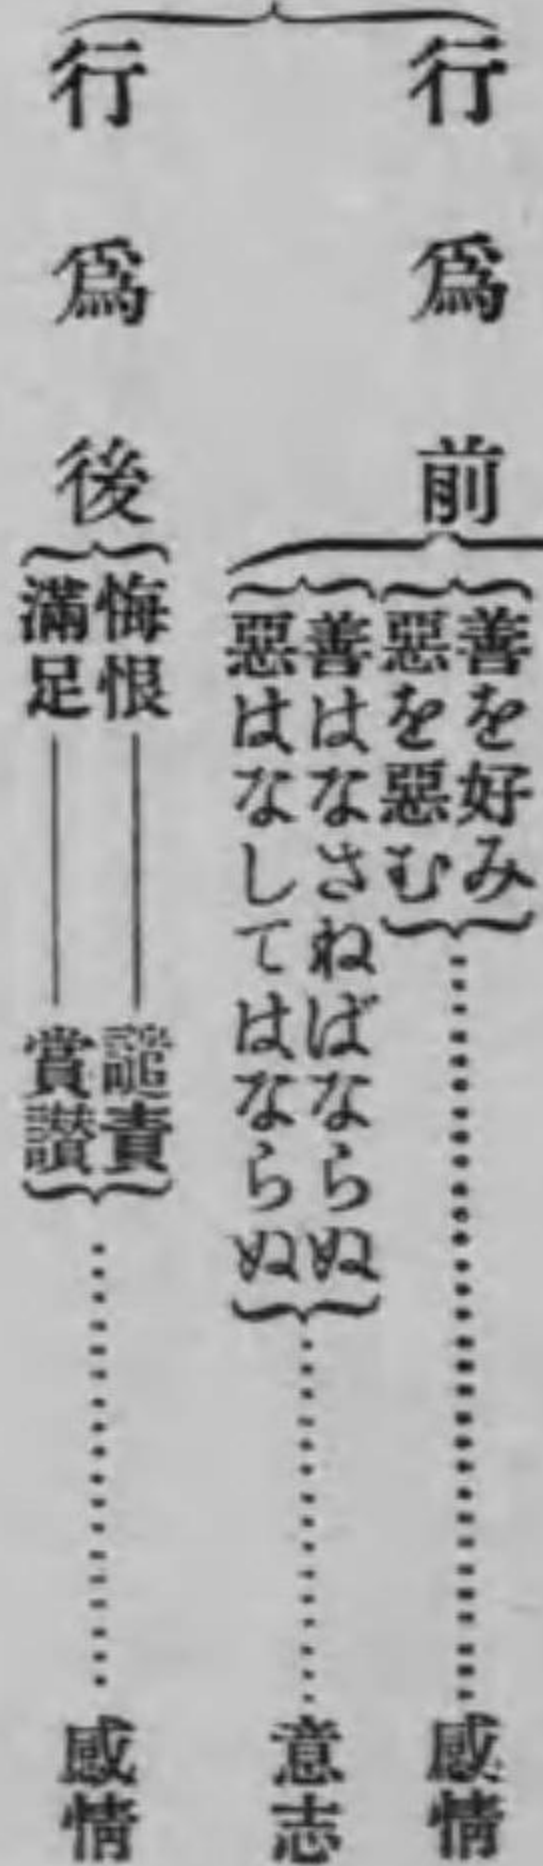 行爲前
善を好み
惡を惡む
感情
善はなさねばならぬ
惡はなしてはならぬ
意志
行爲後
悔恨――譴責
滿足――賞讃
感情